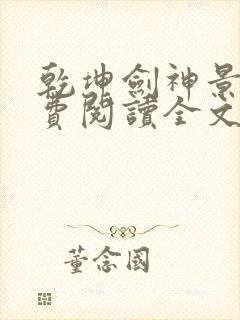 乾坤劍神景
費閱讀全文
董念國